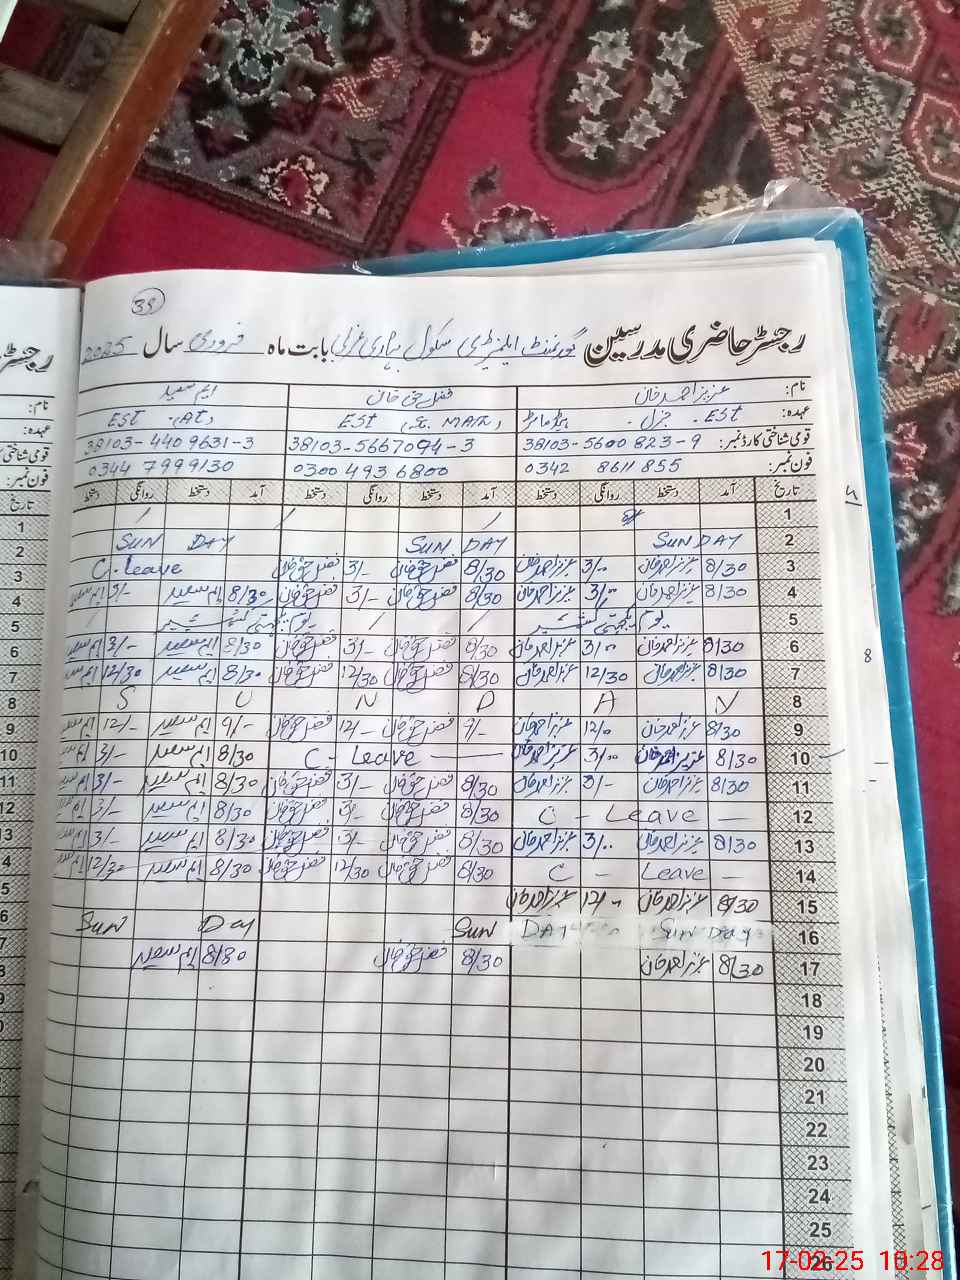 38
رجسٹر حاضری مدرسین گورنمنٹ ایلیمنٹری سکول بابت ماہ فروری سال 2025
نام: عزیز احمد خان فضل حق خان ایم سعید
عہدہ: EST جنرل EST EST (AT)
قومی شناختی کارڈ نمبر: 38103-5600823-9 38103-5667094-3 38103-4409631-3
فون نمبر: 0342 8611855 0300 493 6800 0344 7999130
تاریخ آمد دستخط روانگی دستخط آمد دستخط روانگی دستخط آمد دستخط روانگی دستخط
1
2 SUNDAY SUN DAY SUN DAY
3 8/30 عزیز احمد خان 3/.. عزیز احمد خان 8/30 فضل حق خان 3/- فضل حق خان C. Leave
4 8/30 عزیز احمد خان 3/.. عزیز احمد خان 8/30 فضل حق خان 3/- فضل حق خان 8/30 ایم سعید 3/- ایم سعید
5 یوم یکجہتی کشمیر یوم یکجہتی کشمیر
6 8/30 عزیز احمد خان 3/.. عزیز احمد خان 8/30 فضل حق خان 3/- فضل حق خان 8/30 ایم سعید 3/- ایم سعید
7 8/30 عزیز احمد خان 12/30 عزیز احمد خان 8/30 فضل حق خان 12/30 فضل حق خان 8/30 ایم سعید 12/30 ایم سعید
8 S U N D A Y
9 8/30 عزیز احمد خان 12/. عزیز احمد خان 9/- فضل حق خان 12/- فضل حق خان 9/- ایم سعید 12/- ایم سعید
10 8/30 عزیز احمد خان 3/.. عزیز احمد خان C - Leave — 8/30 ایم سعید 3/- ایم سعید
11 8/30 عزیز احمد خان 3/- عزیز احمد خان 8/30 فضل حق خان 3/- فضل حق خان 8/30 ایم سعید 3/- ایم سعید
12 C - Leave — 8/30 فضل حق خان 3/- فضل حق خان 8/30 ایم سعید 3/- ایم سعید
13 8/30 عزیز احمد خان 3/.. عزیز احمد خان 8/30 فضل حق خان 3/- فضل حق خان 8/30 ایم سعید 3/- ایم سعید
14 C - Leave — 8/30 فضل حق خان 12/30 فضل حق خان 8/30 ایم سعید 12/30 ایم سعید
15 8/30 عزیز احمد خان 12/.. عزیز احمد خان
16 Sun Day Sun DAY Sun Day
17 8/30 عزیز احمد خان 8/30 فضل حق خان 8/30 ایم سعید
18
19
20
21
22
23
24
25
26
8
17-02-25 10:28